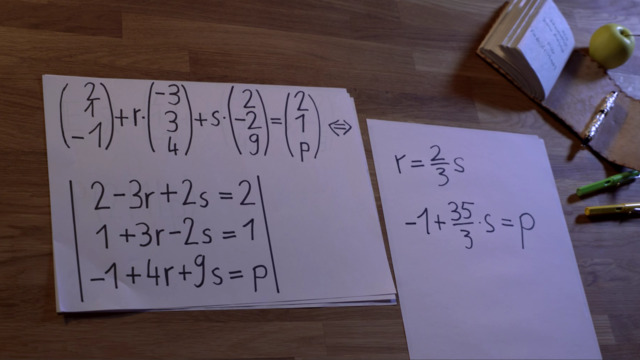 (2 1 -1) + r · (-3 3 4) + s · (2 -2 9) = (2 1 p) ⇔
| 2 - 3r + 2s = 2 |
| 1 + 3r - 2s = 1 |
| -1 + 4r + 9s = p |
r = 2/3 s
-1 + 35/3 · s = p